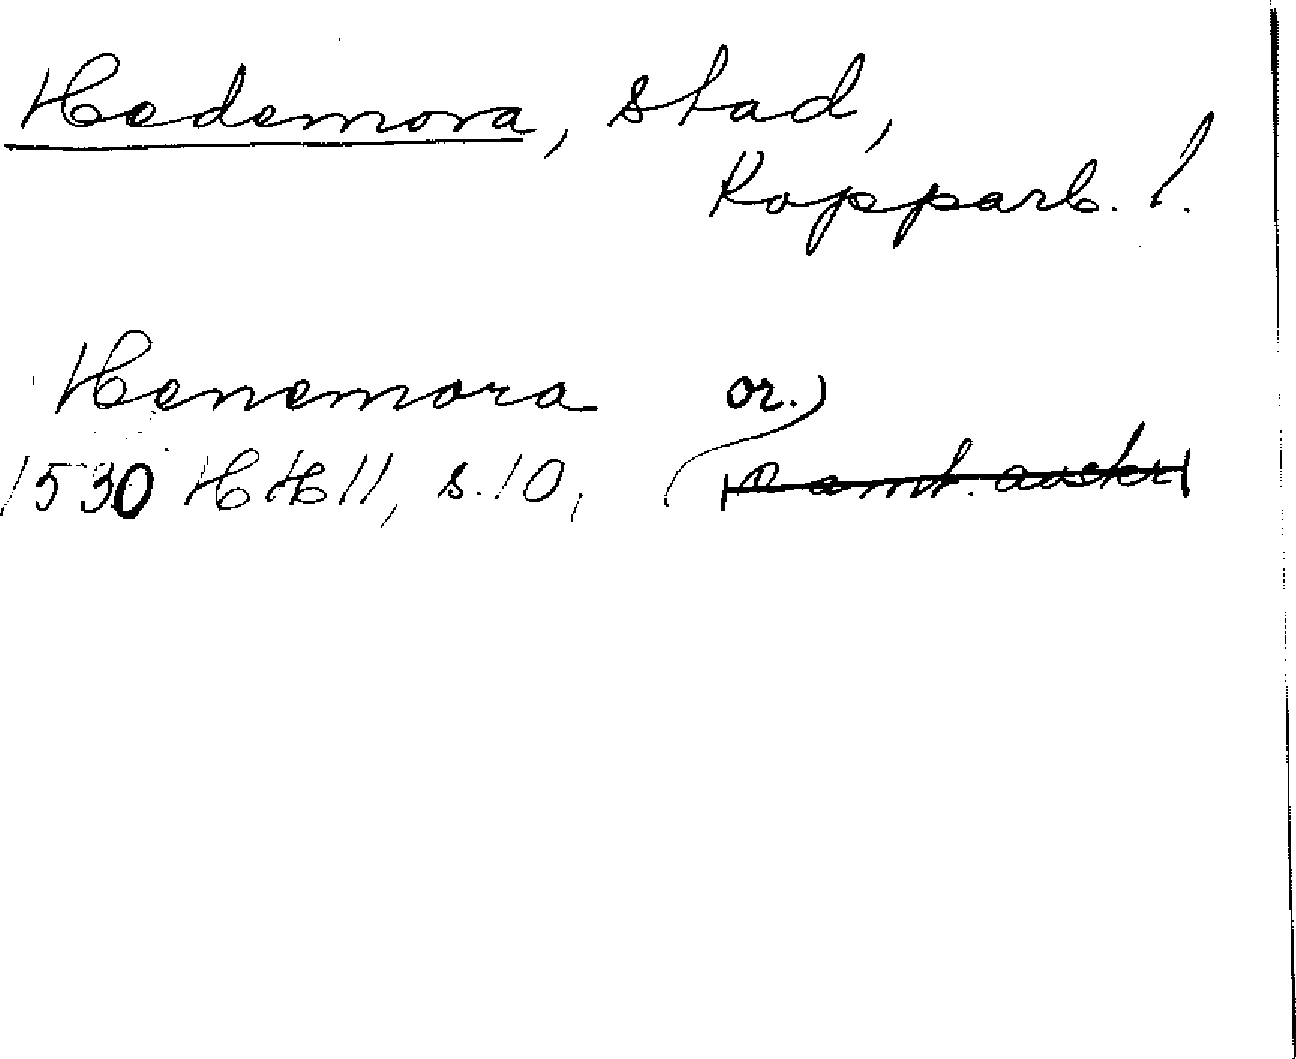 Hedemora, stad,
Kopparb. l.
Henemora or.
1530 HH 11, s. 10,